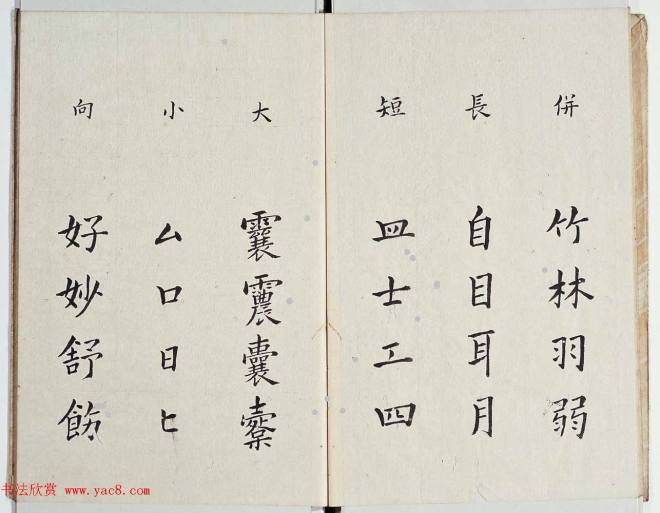 併
竹林羽弱
長
自目耳月
短
皿士工四
大
囊
小
厶口日匕
向
好妙舒
书法欣赏 www.yac8.com